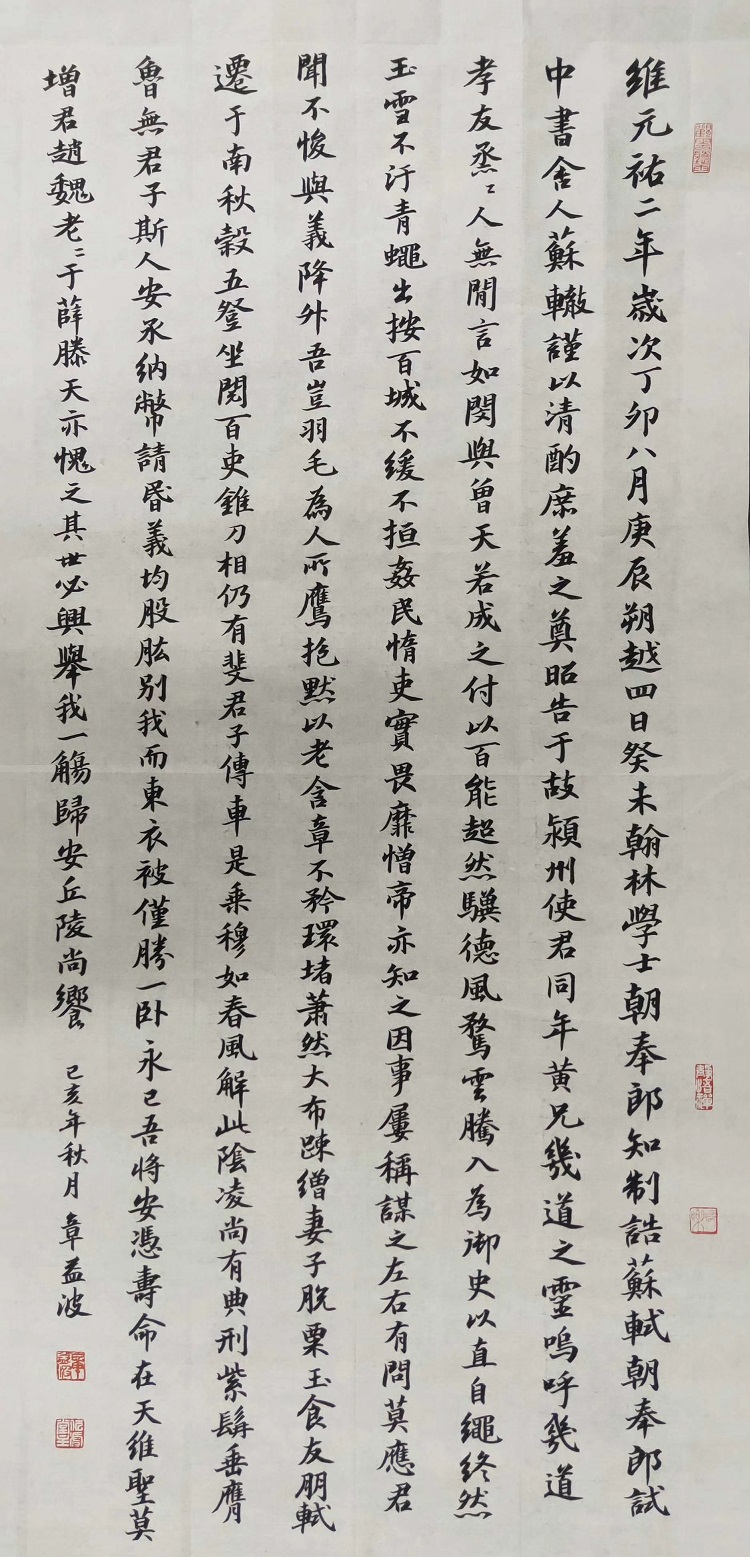 維元祐二年歲次丁卯八月庚辰朔越四日癸未翰林學士朝奉郎知制誥蘇軾朝奉郎試
中書舍人蘇轍謹以清酌庶羞之奠昭告于故潁州使君同年黄兄幾道之靈嗚呼幾道
孝友烝〻人無閒言如閔與曾天若成之付以百能超然驥德風騖雲騰入為御史以直自繩終然
玉雪不汙青蠅出按百城不緩不拒姦民惰吏實畏靡憎帝亦知之因事屢稱謀之左右有問莫應君
聞不悛與義降升吾豈羽毛為人所鷹抱默以老含章不矜環堵蕭然大布踈繒妻子脫粟玉食友朋軾
遷于南秋穀五登坐閱百吏錐刀相仍有斐君子傳車是乘穆如春風解此陰凌尚有典刑紫髯垂膺
魯無君子斯人安承納幣請昬義均股肱别我而東衣袂僅勝一卧永已吾将安憑壽命在天維聖莫
增君趙魏老〻于薛滕天亦愧之其世必興舉我一觴歸安丘陵尚饗
己亥年秋月章益波